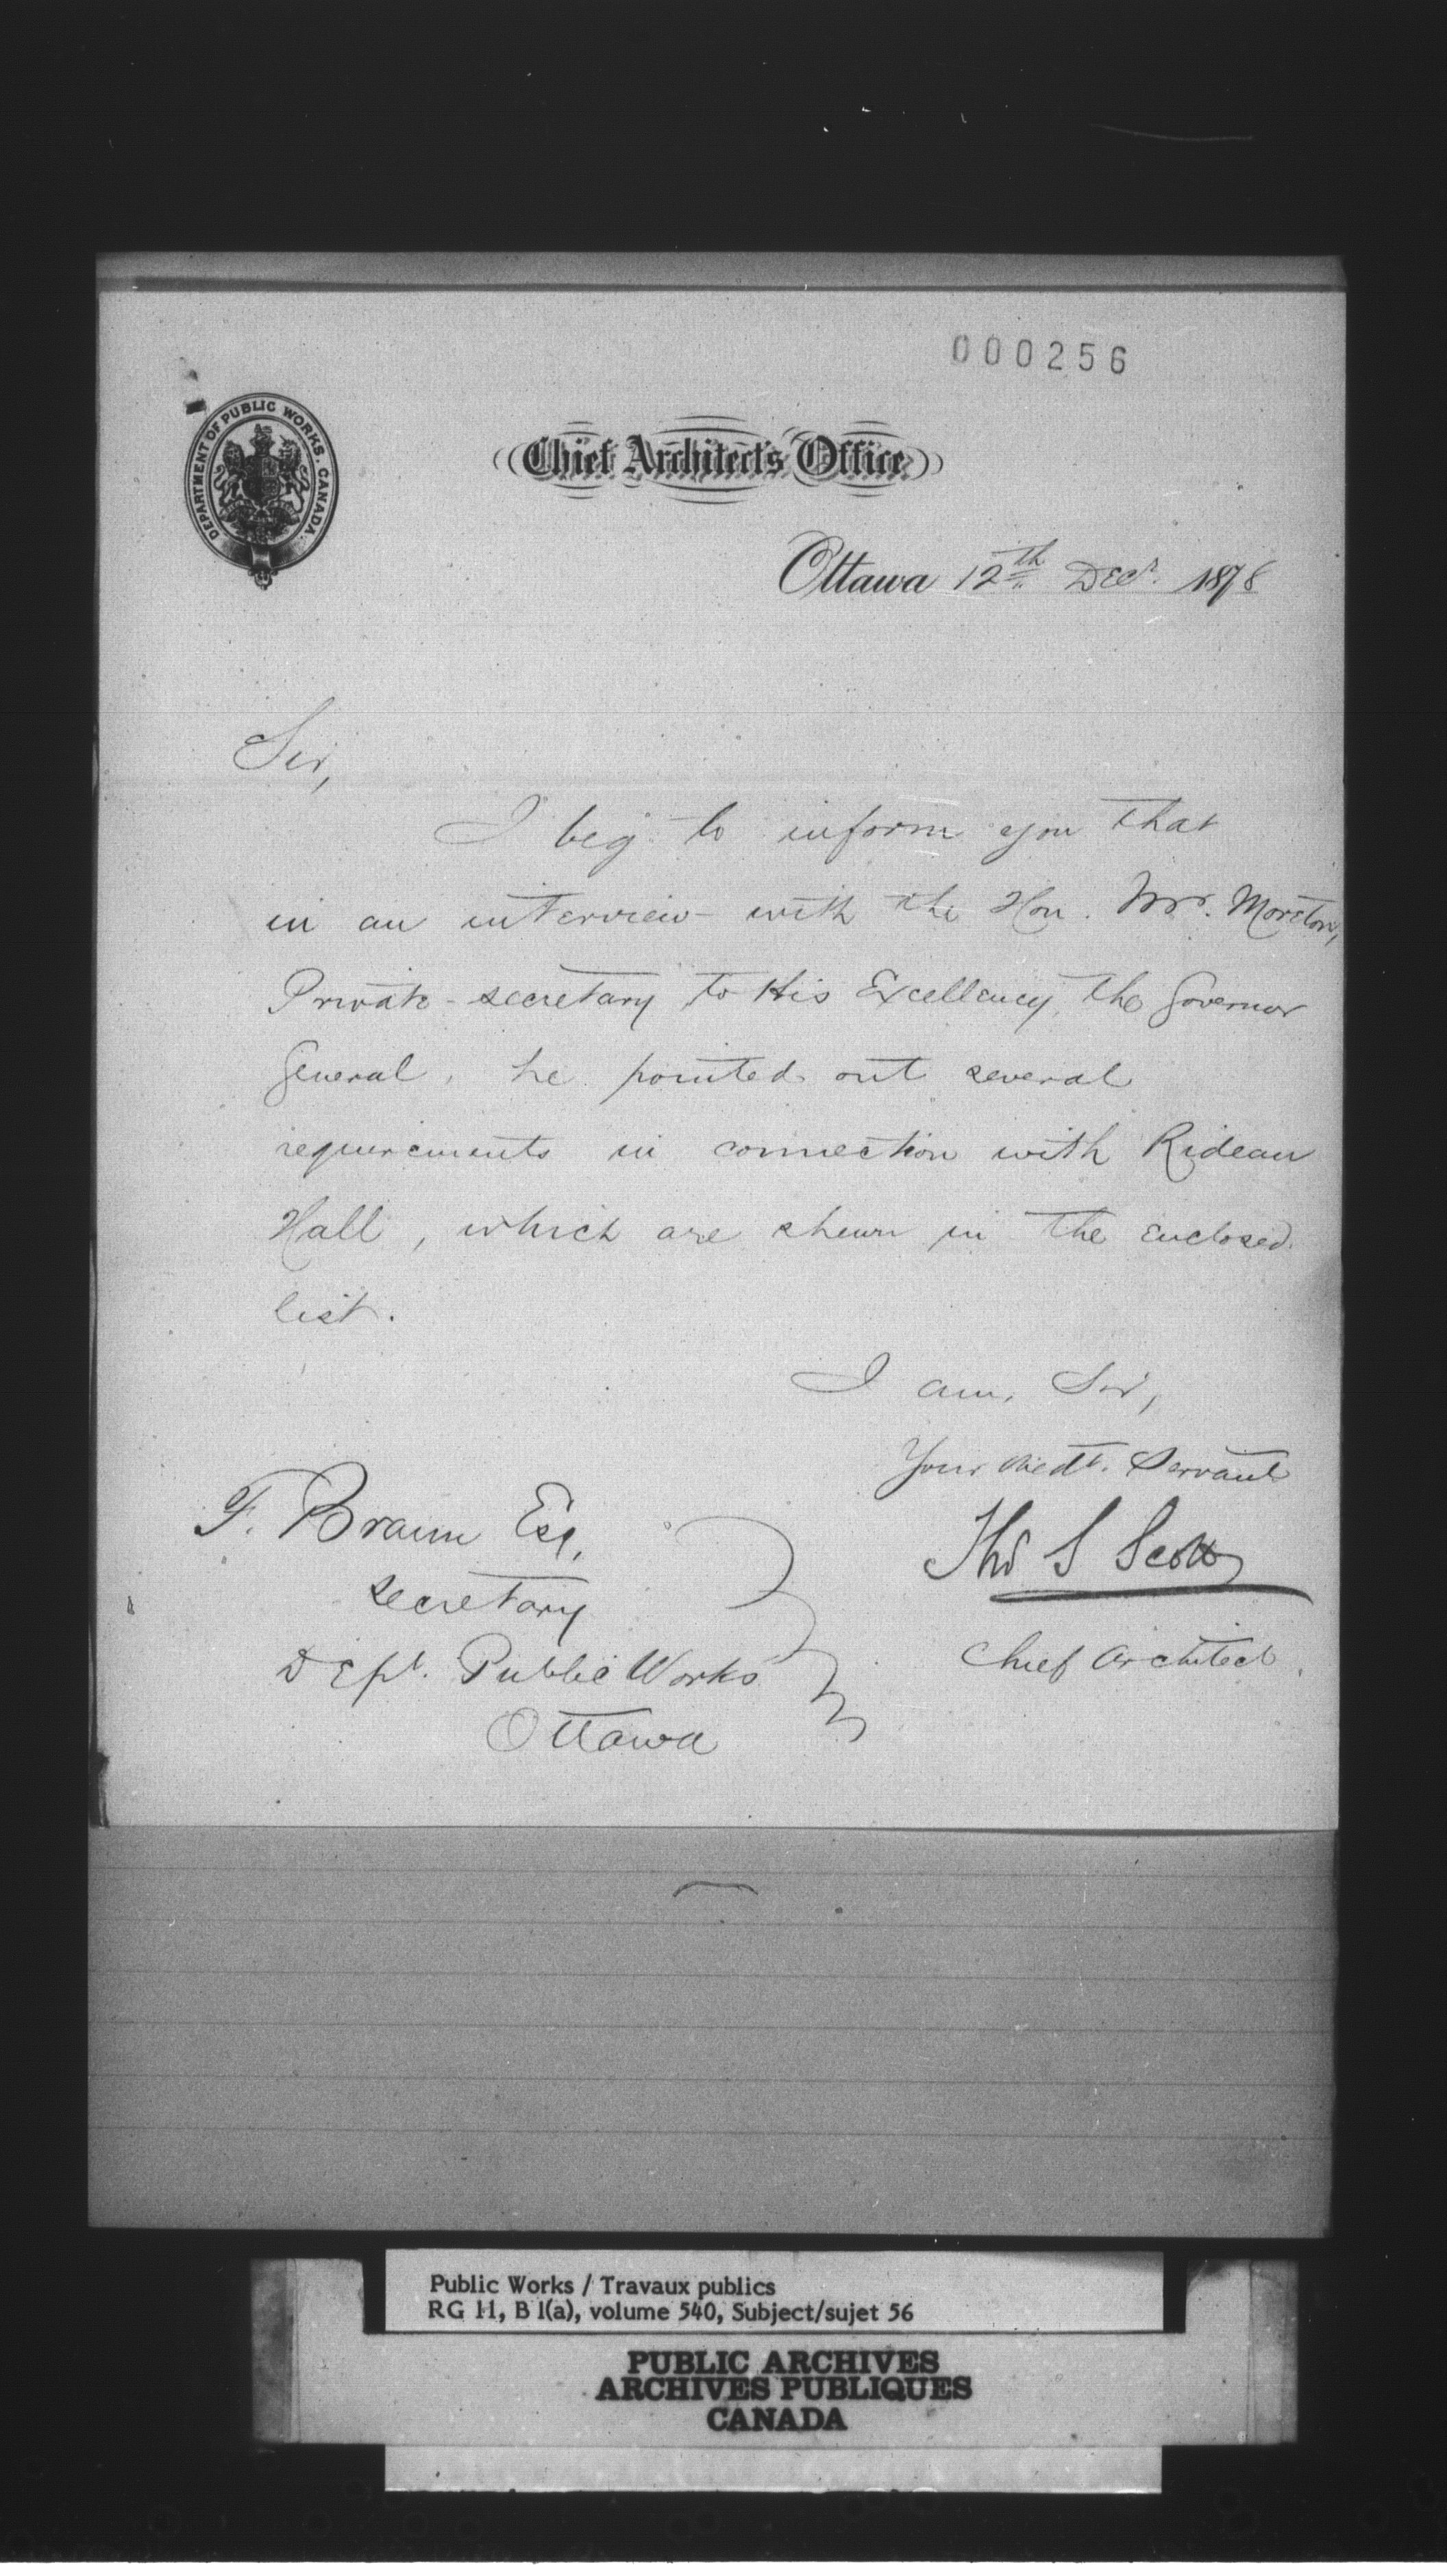 000256
DEPARTMENT OF PUBLIC WORKS. CANADA.
Chief Architect's Office
Ottawa 12th Decr. 1878
Sir,
I beg to inform you that
in an interview with the Hon. Mr. Moreton,
Private-secretary to His Excellency, the Governor
General, he pointed out several
requirements in connection with Rideau
Hall, which are shewn in the enclosed
list.
I am, Sir,
Your obedt. Servant
Thos S Scott
Chief Architect.
F. Braun Esq,
Secretary
Dept. Public Works
Ottawa
Public Works / Travaux publics
RG 11, B 1(a), volume 540, Subject/sujet 56
PUBLIC ARCHIVES
ARCHIVES PUBLIQUES
CANADA